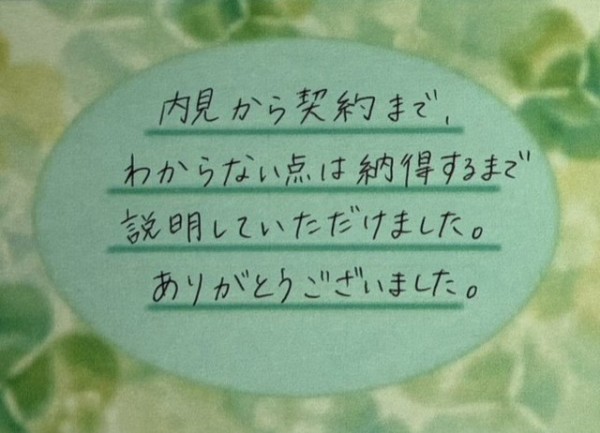 内見から契約まで、
わからない点は納得するまで
説明していただけました。
ありがとうございました。